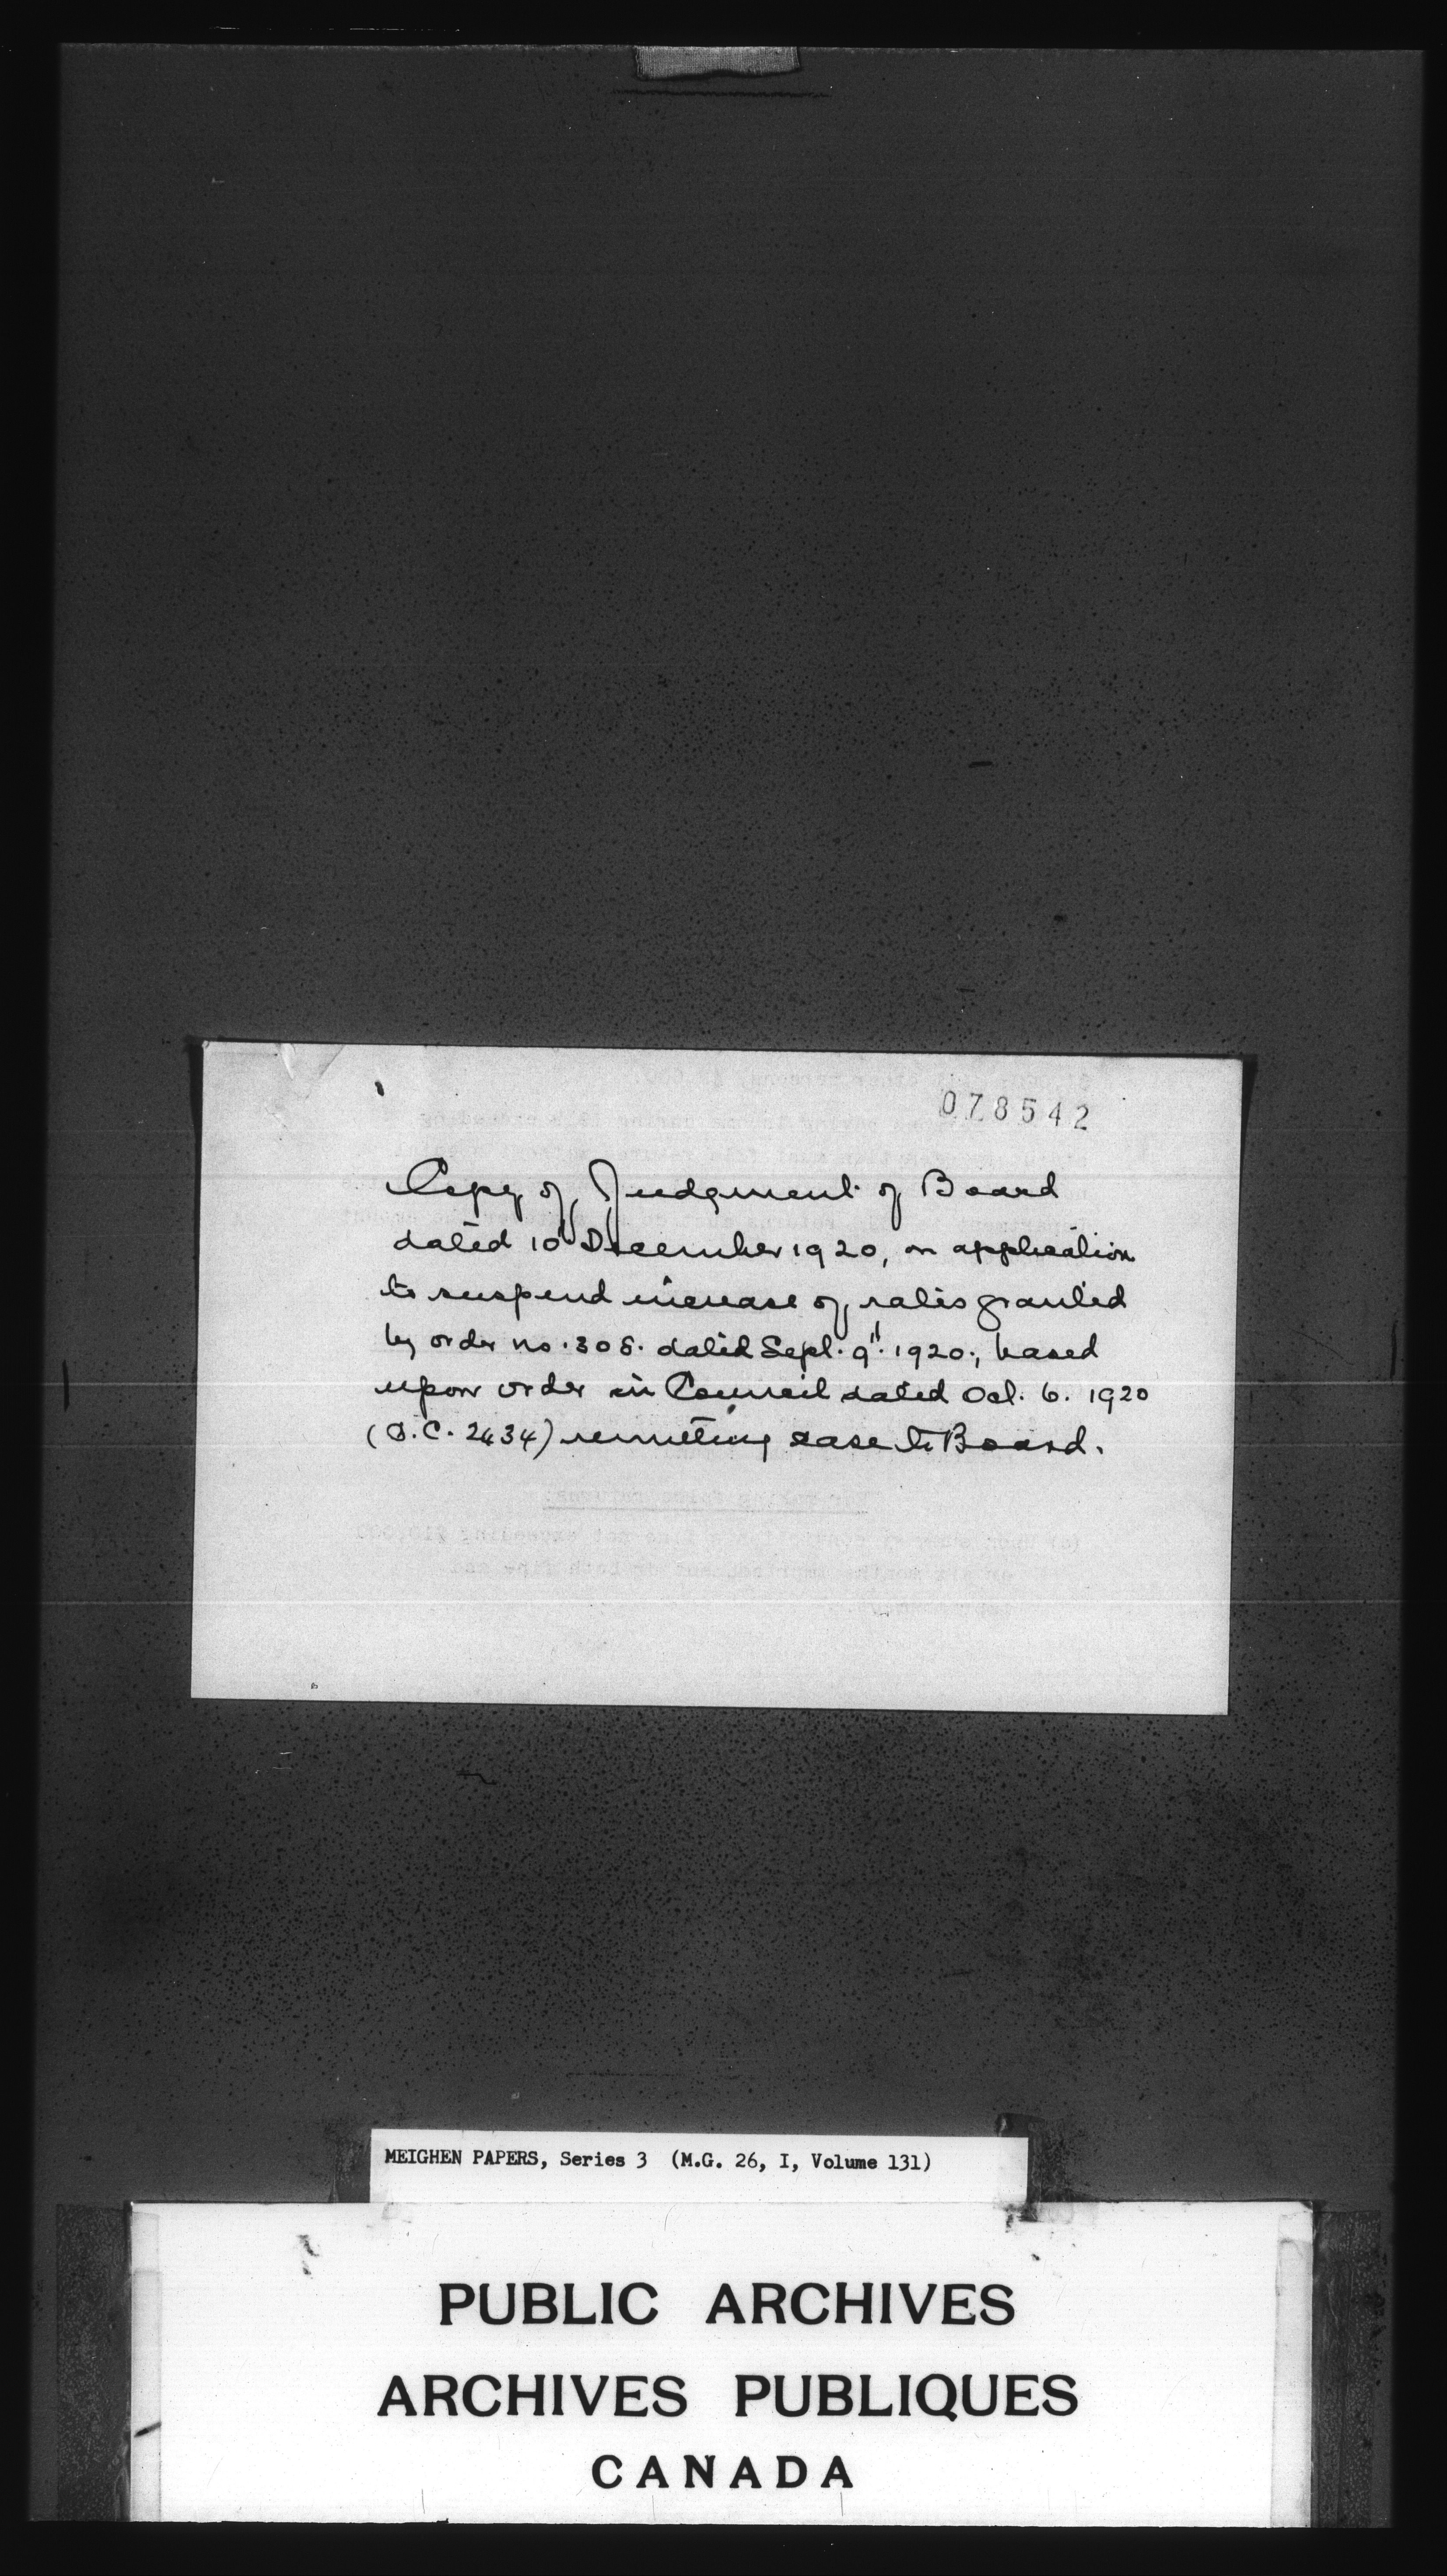 078542
Copy of Judgment of Board
dated 10" December 1920, on application
to suspend increase of rates granted
by order no. 308. dated Sept. 9". 1920., based
upon order in Council dated Oct. 6. 1920
(P.C. 2434) remitting case to Board.
MEIGHEN PAPERS, Series 3 (M.G. 26, I, Volume 131)
PUBLIC ARCHIVES
ARCHIVES PUBLIQUES
CANADA